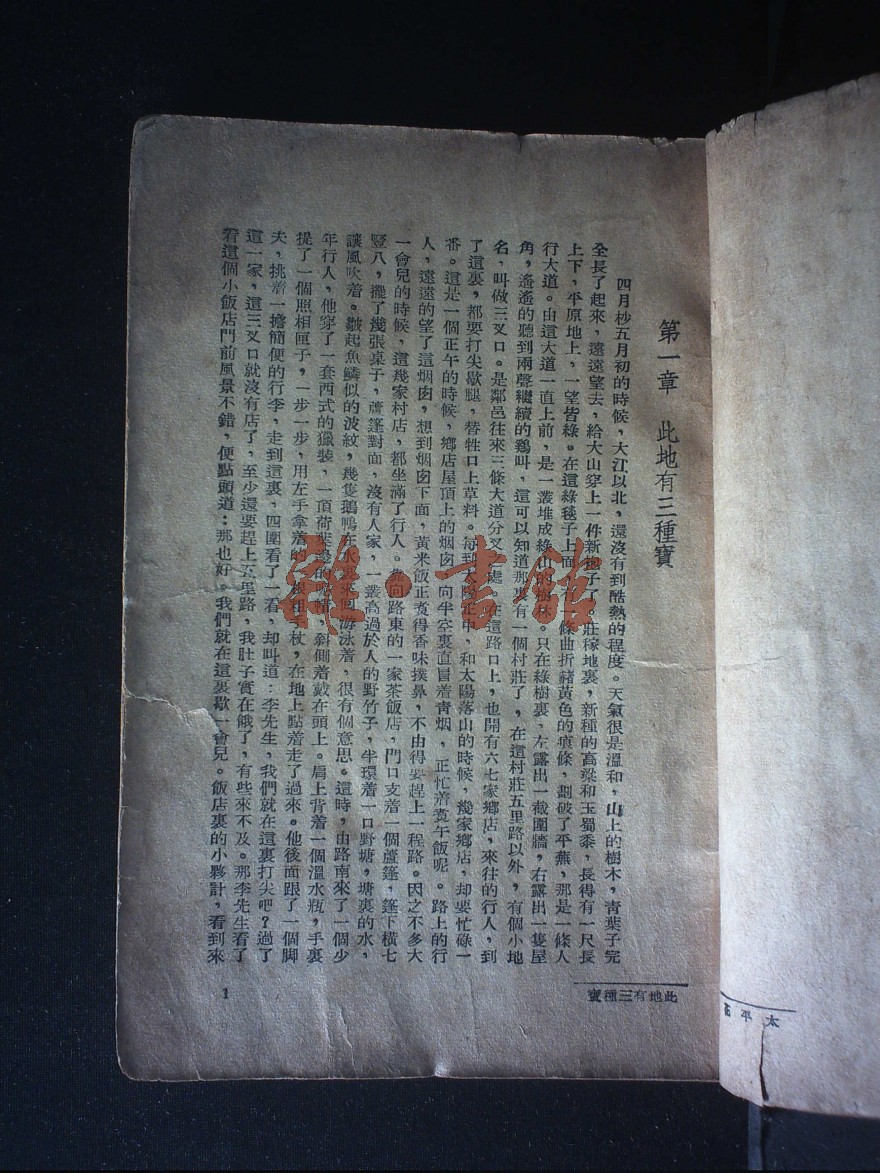 第一章　此地有三種寶
四月杪五月初的時候，大江以北，還沒有到酷熱的程度。天氣很是溫和，山上的樹木，青葉子完
全長了起來，遠遠望去，給大山穿上一件新袍子了。莊稼地裏，新種的高粱和玉蜀黍，長得有一尺長
上下，平原地上，一望皆綠。在這綠毯子上面，一條曲折赭黃色的痕條，劃破了平蕪，那是一條人
行大道。由這大道一直上前，是一叢堆成綠山的樹林。只在綠樹裏，左露出一截圍牆，右露出一隻屋
角，遙遙的聽到兩聲繼續的鷄叫，這可以知道那裏有一個村莊了，在這村莊五里路以外，有個小地
名，叫做三叉口。是鄰邑往來三條大道分叉一處，在這路口上，也開有六七家鄉店，來往的行人，到
了這裏，都要打尖歇腿，替牲口上草料。每到太陽正中，和太陽落山的時候，幾家鄉店，却要忙碌一
番。這是一個正午的時候，鄉店屋頂上的烟囱，向半空裏直冒着青烟，正忙着煑午飯呢。路上的行
人，遠遠的望了這烟囱，想到烟囱下面，黃米飯正煑得香味撲鼻，不由得要趕上一程路。因之不多大
一會兒的時候，這幾家村店，都坐滿了行人。靠向路東的一家茶飯店，門口支着一個蘆篷，篷下橫七
豎八，擺了幾張桌子，蘆篷對面，沒有人家，一叢高過於人的野竹子，半環着一口野塘，塘裏的水，
讓風吹着。皺起魚鱗似的波紋，幾隻鵝鴨在水裏來回游泳着，很有個意思。這時，由路南來了一個少
年行人，他穿了一套西式的獵裝，一頂荷葉邊的帽，斜側着戴在頭上。肩上背着一個溫水瓶，手裏
提了一個照相匣子，一步一步，用左手拿着的一根粗手杖，在地上點着走了過來。他後面跟了一個脚
夫，挑着一擔簡便的行李，走到這裏，四圍看了一看，却叫道：李先生，我們就在這裏打尖吧？過了
這一家，這三叉口就沒有店了，至少還要趕上五里路，我肚子實在餓了，有些來不及。那李先生看了
看這個小飯店門前風景不錯，便點頭道：那也好。我們就在這裏歇一會兒。飯店裏的小夥計，看到來
此地有三種寶
1
太平
雜·書館